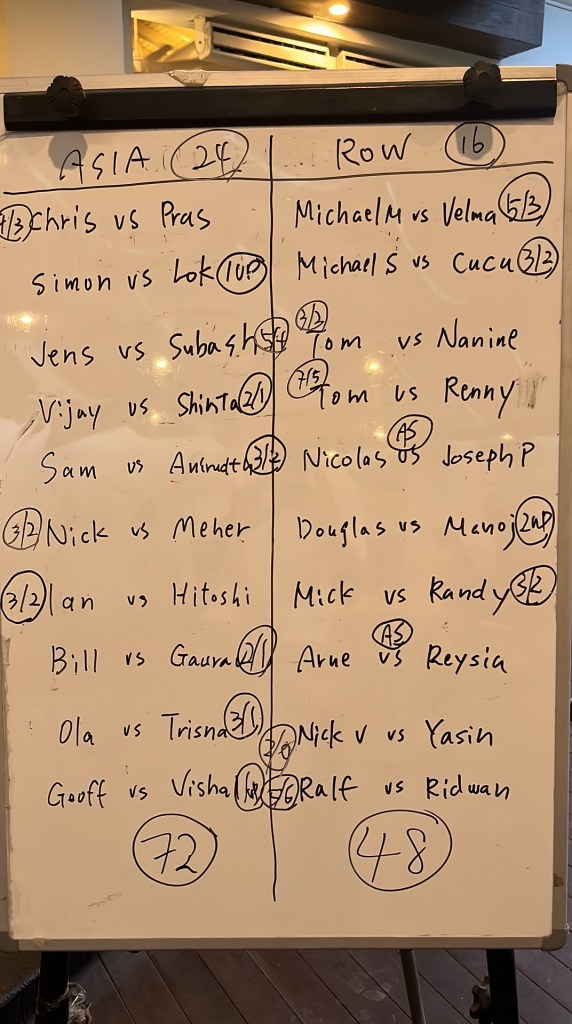 ASIA 24 ROW 16
4/3 Chris vs Pras Michael M vs Velma 5/3
Simon vs Lok 1UP Michael S vs Cucu 3/2
Jens vs Subash 5/4 3/2 Tom vs Nanine
Vijay vs Shinta 2/1 7/5 Tom vs Renny
Sam vs 3/2 Nicolas vs Joseph P AS
3/2 Nick vs Meher Douglas vs Manoj 2UP
3/2 Ian vs Hitoshi Mick vs Randy 3/2
Bill vs Gaurav 2/1 Arne vs Reysia AS
Ola vs Trisna 3/1 Nick V vs Yasin
Geoff vs Vishal Ralf vs Ridwan
72 48